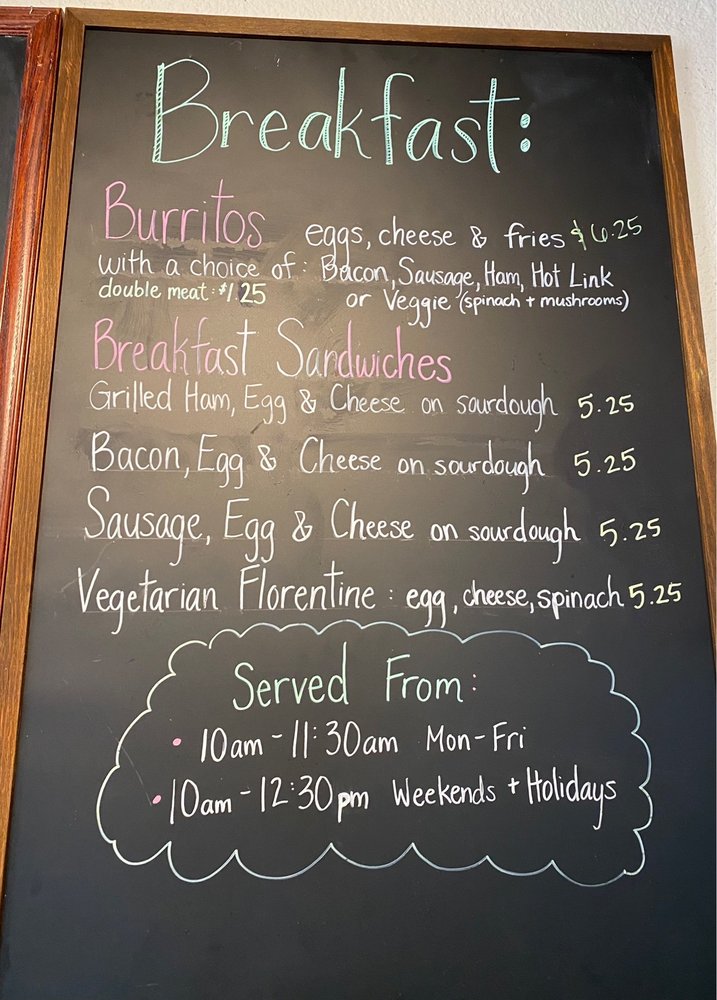 Breakfast:
Burritos eggs, cheese & fries $6.25
with a choice of: Bacon, Sausage, Ham, Hot Link
double meat: $1.25 or Veggie (spinach + mushrooms)
Breakfast Sandwiches
Grilled Ham, Egg & Cheese on sourdough 5.25
Bacon, Egg & Cheese on sourdough 5.25
Sausage, Egg & Cheese on sourdough 5.25
Vegetarian Florentine: egg, cheese, spinach 5.25
Served From:
• 10am - 11:30am Mon-Fri
• 10am - 12:30pm Weekends + Holidays